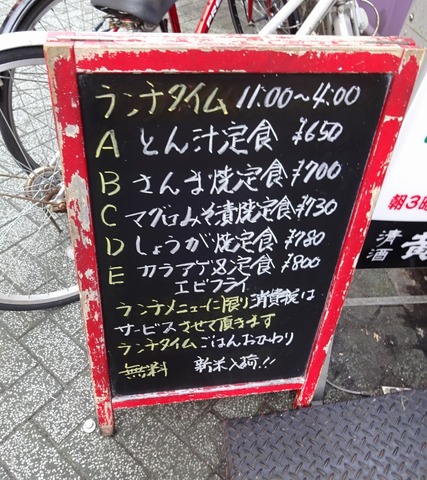 ランチタイム 11:00〜4:00
A とん汁定食 ¥650
B さんま焼定食 ¥700
C マグロみそ漬焼定食 ¥730
D しょうが焼定食 ¥780
E カラアゲ&定食 ¥800
エビフライ
ランチメニューに限り消費税は
サービスさせて頂きます
ランチタイムごはんおかわり
無料 新米入荷!!
朝3時
清酒